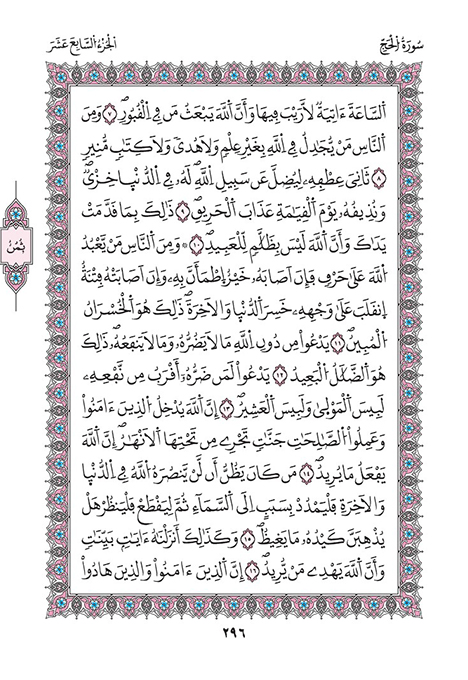 سُورَةُ الْحَجِّ
الجُزْءُ السَّابِعَ عَشَرَ
اَلسَّاعَةَ ءَاتِيَةٌ لَّا رَيْبَ فِيهَا وَأَنَّ اَللَّهَ يَبْعَثُ مَن فِے اِلْقُبُورِۖ ۝٧ وَمِنَ
اَلنَّاسِ مَنْ يُّجَٰدِلُ فِے اِللَّهِ بِغَيْرِ عِلْمٖ وَلَا هُدىٗ وَلَا كِتَٰبٖ مُّنِيرٖ
۝٨ ثَانِيَ عِطْفِهِۦ لِيُضِلَّ عَن سَبِيلِ اِللَّهِۖ لَهُۥ فِے اِلدُّنْيَا خِزْيٞۖ
وَنُذِيقُهُۥ يَوْمَ اَلْقِيَٰمَةِ عَذَابَ اَلْحَرِيقِۖ ۝٩ ذَٰلِكَ بِمَا قَدَّمَتْ
يَدَٰكَ وَأَنَّ اَللَّهَ لَيْسَ بِظَلَّٰمٖ لِّلْعَبِيدِۖ ۝١٠ ۞ وَمِنَ اَلنَّاسِ مَنْ يَّعْبُدُ
اُللَّهَ عَلَىٰ حَرْفٖ فَإِنَ اَصَابَهُۥ خَيْرٌ اِطْمَأَنَّ بِهِۦ وَإِنَ اَصَابَتْهُ فِتْنَةٌ
اِنقَلَبَ عَلَىٰ وَجْهِهِۦ خَسِرَ اَلدُّنْيَا وَالَاخِرَةَۖ ذَٰلِكَ هُوَ اَلْخُسْرَانُ
اُلْمُبِينُۖ ۝١١ يَدْعُواْ مِن دُونِ اِللَّهِ مَا لَا يَضُرُّهُۥ وَمَا لَا يَنفَعُهُۥۖ ذَٰلِكَ
هُوَ اَلضَّلَٰلُ اُلْبَعِيدُۖ ۝١٢ يَدْعُواْ لَمَن ضَرُّهُۥٓ أَقْرَبُ مِن نَّفْعِهِۦ
لَبِيسَ اَلْمَوْلَىٰ وَلَبِيسَ اَلْعَشِيرُۖ ۝١٣ إِنَّ اَللَّهَ يُدْخِلُ اُلذِينَ ءَامَنُواْ
وَعَمِلُواْ اُلصَّٰلِحَٰتِ جَنَّٰتٖ تَجْرِے مِن تَحْتِهَا اَلَانْهَٰرُۖ إِنَّ اَللَّهَ
يَفْعَلُ مَا يُرِيدُۖ ۝١٤ مَن كَانَ يَظُنُّ أَن لَّنْ يَّنصُرَهُ اُللَّهُ فِے اِلدُّنْيَا
وَالَاخِرَةِ فَلْيَمْدُدْ بِسَبَبٍ اِلَى اَلسَّمَآءِ ثُمَّ لِيَقْطَعْ فَلْيَنظُرْ هَلْ
يُذْهِبَنَّ كَيْدُهُۥ مَا يَغِيظُۖ ۝١٥ وَكَذَٰلِكَ أَنزَلْنَٰهُ ءَايَٰتِۢ بَيِّنَٰتٖ
وَأَنَّ اَللَّهَ يَهْدِے مَنْ يُّرِيدُۖ ۝١٦ إِنَّ اَلذِينَ ءَامَنُواْ وَالذِينَ هَادُواْ
ثُمُنُ
٢٩٦